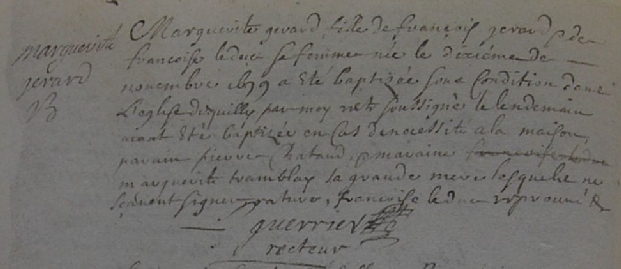 marguerite
gerard
Marguerite gerard fille de françois gerard & de
francoise leduc sa femme née le dixième de
novembre 1679 a été baptizée sous condition dans
L'eglise par moy soussigné le lendemain
ayant été baptizée en cas de necessité a la maison
parain pierre Chataud, & maraine
marguerite tramblay sa grande mere lesquels ne
sçavent signer rature, francoise leduc
guerrier
recteur